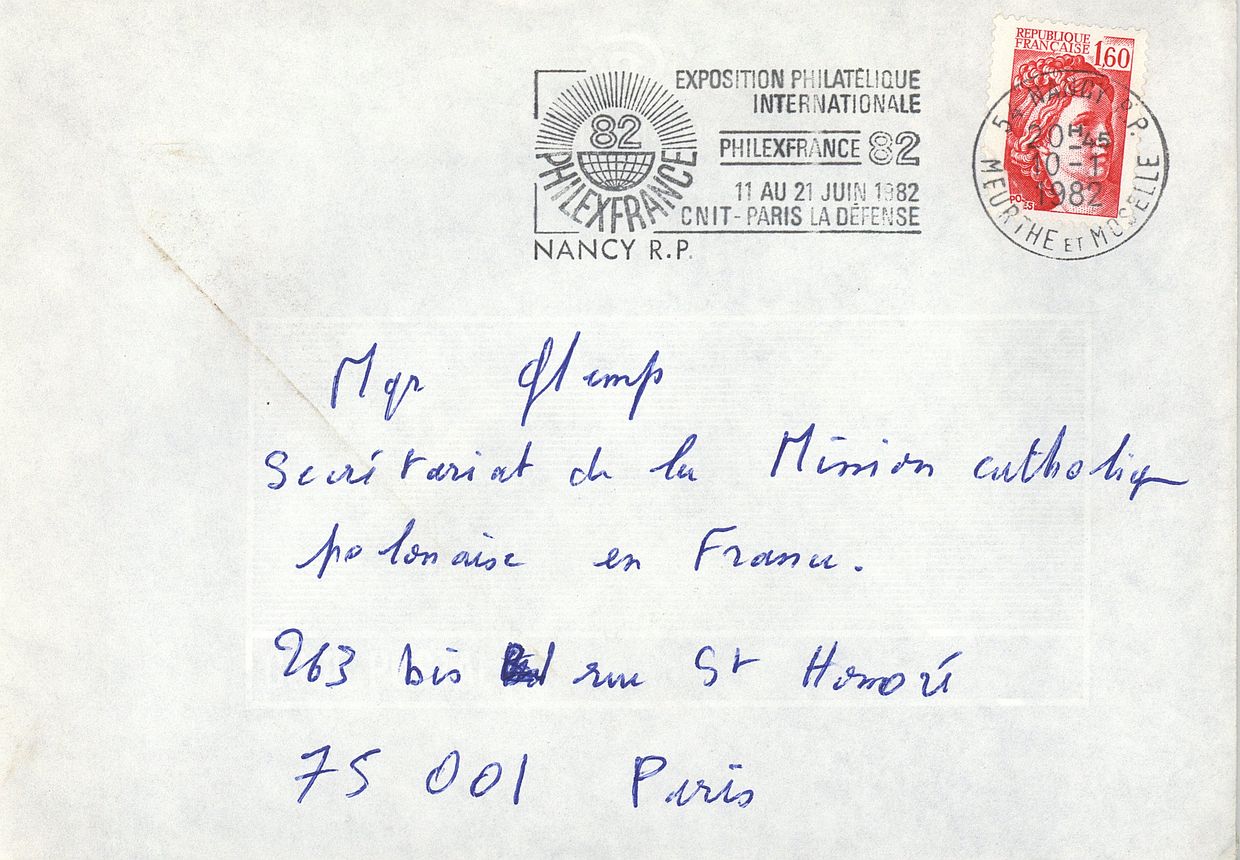 EXPOSITION PHILATÉLIQUE
INTERNATIONALE
PHILEXFRANCE 82
11 AU 21 JUIN 1982
CNIT - PARIS LA DÉFENSE
82
PHILEXFRANCE
NANCY R.P.
REPUBLIQUE
FRANÇAISE 1,60
POSTES
54 NANCY R.P.
20H45
10-1
1982
MEURTHE ET MOSELLE
Mgr Glemp
Secrétariat de la Mission catholique
polonaise en France.
263 bis rue St Honoré
75 001 Paris